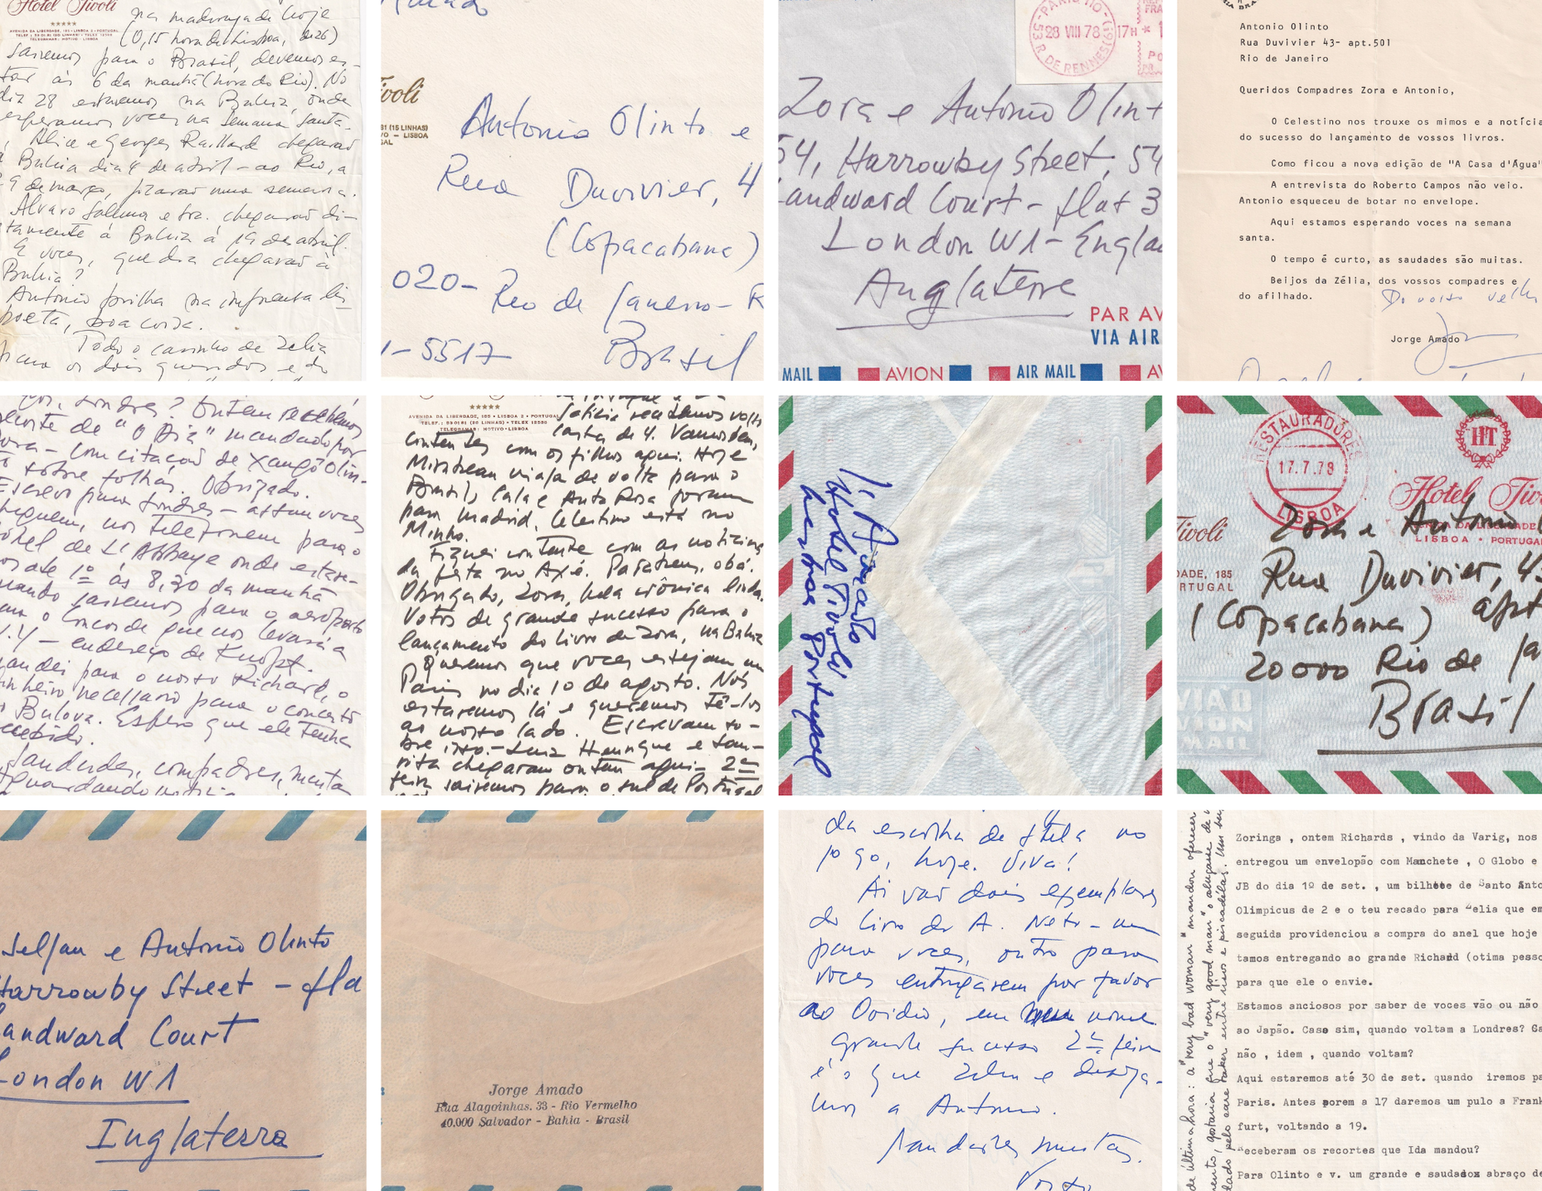 Hotel Tivoli
AVENIDA DA LIBERDADE, 185 • LISBOA 2 • PORTUGAL
na madrugada de hoje
(0,15 hora de Lisboa,
sairemos para o Brasil, devemos es-
tar às 6 da manhã (hora do Rio). No
dia 28 estaremos na Bahia, onde
esperamos voces na semana santa.
Alice e Georges Raillard chegarão
à Bahia dia 4 de abril - ao Rio, a
9 de março, ficarão uma semana.
Alvaro Salema e sra. chegarão di-
tamente à Bahia à 19 de abril.
E voces, que dia chegarão a
Bahia?
Antonio brilha na imprensa lis-
boeta, boa coisa.
Todo o carinho de Zelia
para os dois queridos e do
Tivoli
81 (15 LINHAS)
VO - LISBOA
GAL
Antonio Olinto e
Rua Duvivier, 4
(Copacabana)
020- Rio de Janeiro - R
1-5517 Brasil
PARIS 110
28 VIII 78
53 R. DE RENNES (6e)
17H
Zora e Antonio Olint
54, Harrowby Street, 54
andward Court - flat 3
London W1 - Englan
Angleterre
PAR AV
VIA AIR
MAIL AVION AIR MAIL AV
Antonio Olinto
Rua Duvivier 43- apt.501
Rio de Janeiro
Queridos Compadres Zora e Antonio,
O Celestino nos trouxe os mimos e a notícia
do sucesso do lançamento de vossos livros.
Como ficou a nova edição de "A Casa d'Água"
A entrevista do Roberto Campos não veio.
Antonio esqueceu de botar no envelope.
Aqui estamos esperando voces na semana
santa.
O tempo é curto, as saudades são muitas.
Beijos da Zélia, dos vossos compadres e
do afilhado.
Do vosso velho
Jorge Amado
Londres? Ontem recebemos
recorte de "O Dia" mandado por
Zora - com citação de Xangô Olin-
to sobre folhas. Obrigado.
Escrevo para Londres - assim voces
cheguem, nos telefonem para o
Hotel de L'Abbaye onde estare-
mos até 1º às 8,30 da manhã
quando sairemos para o aeroporto
com o Concorde que nos levará a
N.Y - endereço de Knopf.
mandei para o nosso Richard, o
dinheiro necessario para o conserto
Bulova. Espero que ele tenha
recebido.
Saudades, compadres, muitas
AVENIDA DA LIBERDADE, 185 • LISBOA 2 • PORTUGAL
TELEGRAMAS: MOTIVO-LISBOA
recebemos vossa
carta de 4. Vamos bem,
contentes com os filhos aqui. Hoje
Misette viaja de volta para o
Brasil, Lala e Auta Rosa foram
para Madrid, Celestino está no
Minho.
Fiquei contente com as noticias
da festa no Axé. Parabens, obá.
Obrigado, Zora, bela crônica linda.
Votos de grande sucesso para o
lançamento do livro de Zora, na Bahia
Queremos que voces estejam em
Paris no dia 10 de agosto. Nós
estaremos lá e queremos tê-los
ao nosso lado. Escrevam so-
bre isso. - Luiz Henrique e
chegaram ontem aqui - 2ª
feira sairemos para o sul de Portugal
J. Amado
Hotel Tivoli
Lisboa Portugal
RESTAURADORES
17.7.78
LISBOA
HT
Hotel Tivoli
LISBOA • PORTUGAL
Tivoli
DADE, 185
RTUGAL
Zora e Antonio
Rua Duvivier, 43
(Copacabana) apt
20000 Rio de Ja
Brasil
Seljan e Antonio Olinto
Harrowby Street - fla
andward Court
London W1
Inglaterra
Jorge Amado
Rua Alagoinhas, 33 - Rio Vermelho
40.000 Salvador - Bahia - Brasil
da escolha de Stela no
jogo, hoje. Viva!
Ai vão dois exemplares
do livro do A. Neto - um
para voces, outro para
voces entregarem por favor
ao Ovidio, em meu nome
grande sucesso 2ª feira
é o que Zelia e deseja-
mos a Antonio.
Saudades muitas.
Vosso
de última hora: a "very bad woman" mandou oferecer
Zoringa , ontem Richards , vindo da Varig, nos
entregou um envelopão com Manchete , O Globo e
JB do dia 1º de set. , um bilhete de Santo Anto
Olimpicus de 2 e o teu recado para "elia que em
seguida providenciou a compra do anel que hoje
tamos entregando ao grande Richard (otima pesso
para que ele o envie.
Estamos anciosos por saber de voces vão ou não
ao Japão. Caso sim, quando voltam a Londres? Ca
não , idem , quando voltam?
Aqui estaremos até 30 de set. quando iremos pa
Paris. Antes porem a 17 daremos um pulo a Frank
furt, voltando a 19.
"eceberam os recortes que Ida mandou?
Para Olinto e v. um grande e saudoso abraço de